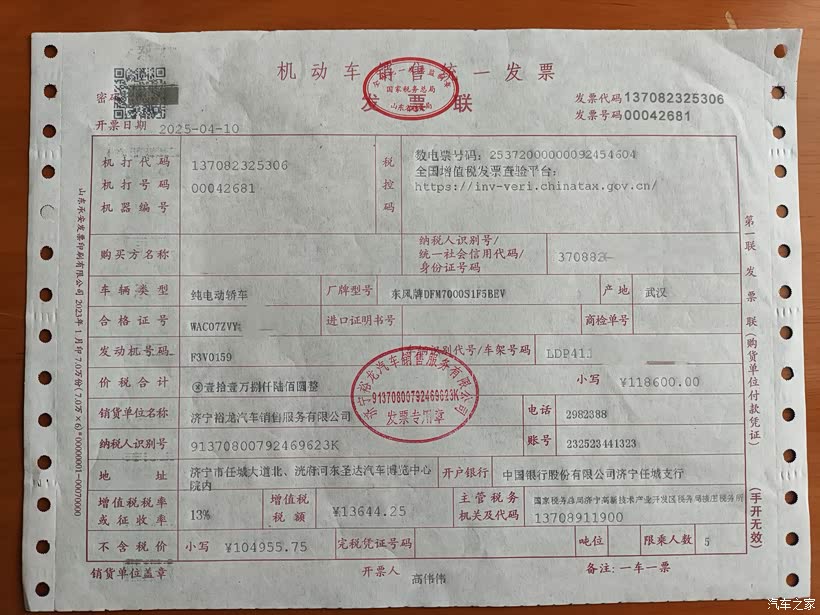 机动车销售统一发票
发票联
国家税务总局
发票代码137082325306
发票号码00042681
开票日期 2025-04-10
机打代码 137082325306
机打号码 00042681
机器编号
税控码
数电票号码：25372000000092454604
全国增值税发票查验平台：
https://inv-veri.chinatax.gov.cn/
购买方名称
纳税人识别号/
统一社会信用代码/
身份证号码
370882
车辆类型 纯电动轿车 厂牌型号 东风牌DFM7000S1F5BEV 产地 武汉
合格证号 WAC07ZVY 进口证明书号 商检单号
发动机号码 F3V0159 识别代号/车架号码 LDP41J
价税合计 ⊗壹拾壹万捌仟陆佰圆整 小写 ¥118600.00
销货单位名称 济宁裕龙汽车销售服务有限公司 电话 2982388
纳税人识别号 91370800792469623K 账号 232523441323
地址 济宁市任城大道北、洸府河东圣达汽车博览中心
院内
开户银行 中国银行股份有限公司济宁任城支行
增值税税率
或征收率
13%
增值税
税额
¥13644.25
主管税务
机关及代码
13708911900
不含税价 小写 ¥104955.75 完税凭证号码 吨位 限乘人数 5
销货单位盖章 开票人 高伟伟 备注：一车一票
济宁裕龙汽车销售服务有限公司
91370800792469623K
发票专用章
第一联 发票联(购货单位付款凭证)
(手开无效)
山东承安发票印刷有限公司2023年1月印7.0万份(7.0万×6)*00000001-00070000
汽车之家